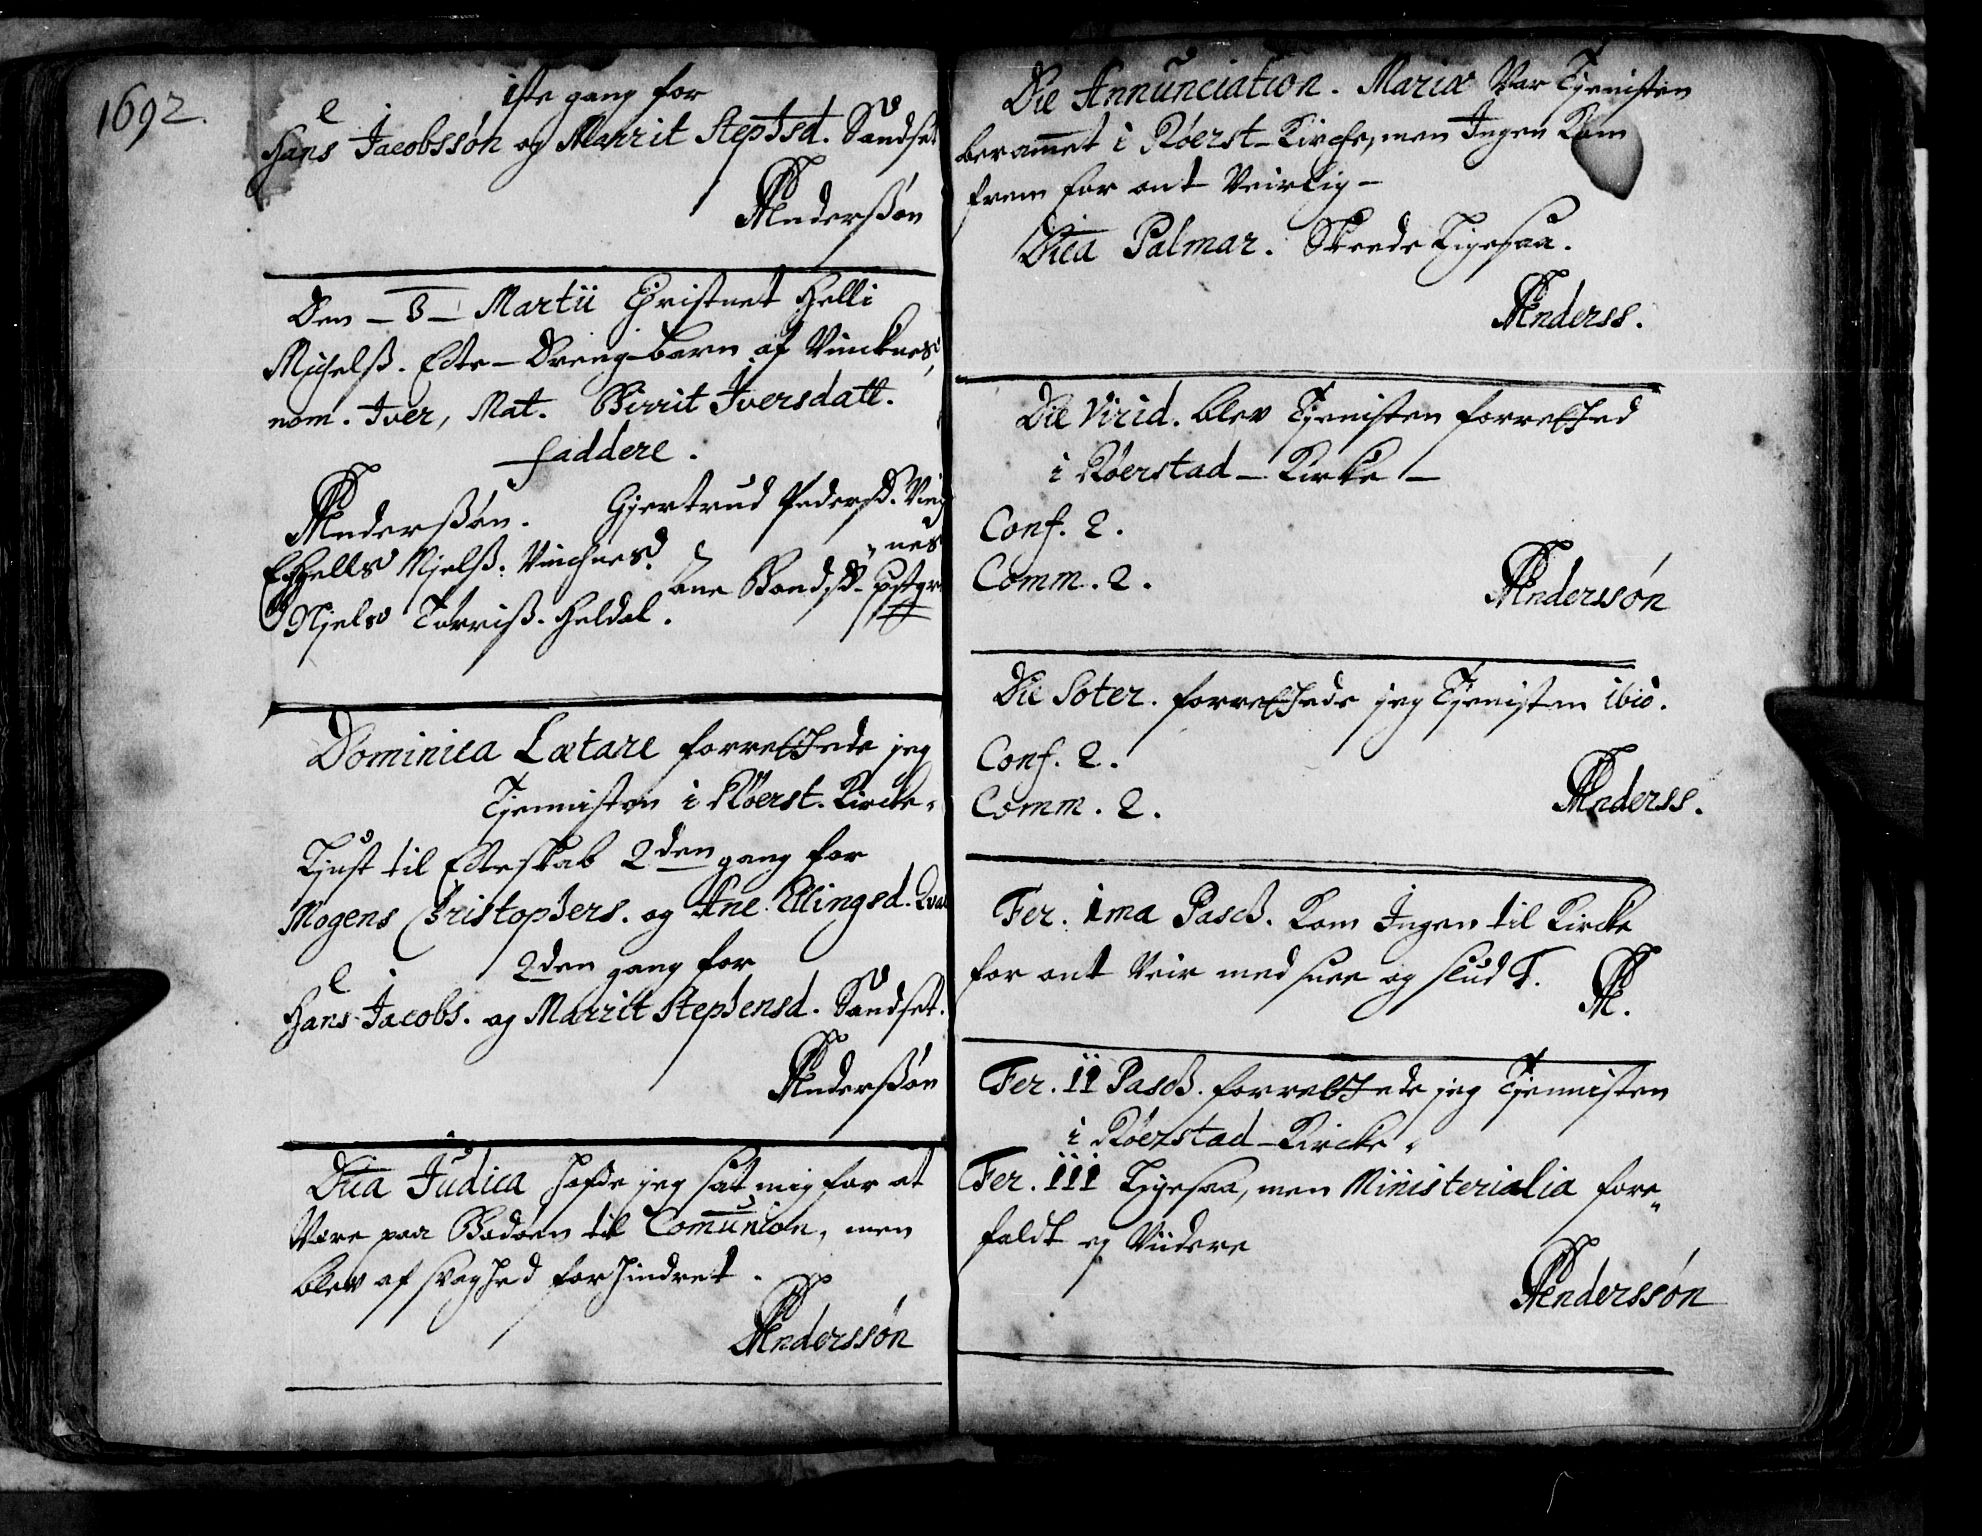 1692.
1ste gang for
Hans Jacobssøn og Marrit Stephsd. Sandset
Anderssøn
Den 3 Martii Christnet Helli
Michelss. Ecte-Drengbarn af Vincknes,
nom. Iver, Mat. Birrit Iversdatt.
faddere.
Anderssøn. Gjertrud Pedersd. Vinck
nes
Nielss. Vincknes. ane
Niels Torriss. Heldal.
Dominica Lætare forrettede jeg
Tjennisten i Røerst. Kircke.
Liust til Ecteskab 2den gang for
Mogens Christophers. og Ane Ellingsd.
2den gang for
Hans Jacobs. og Marrit Stephensd. Sandset.
Anderssøn
Dica Judica hafde jeg sat mig for at
Være paa Bodøen til Comunion, men
blev af svaghed forhindret.
Anderssøn
Die Annunciation. Mariæ Var Tjenisten
berammet i Røerst-Kirche, men Ingen Kom
frem for ont Veirlig-
Dica Palmar. Skeede Ligesaa.
Anderss.
Die Virid. blev Tjenisten forretted
i Røerstad-Kirke-
Conf. 2.
Comm. 2.
Anderssøn
Die Soter. forrettede jeg Tjenisten ibid.
Conf. 2.
Comm. 2.
Anderss.
Fer. 1ma Pasch. Kom Ingen til Kircke
for ont Veir med snee og slud
A.
Fer. II Pasch. forrettede jeg Tjennisten
i Røerstad-Kircke.
Fer. III Ligesaa, men Ministerialia fore„
faldt ej Viidere
Anderssøn